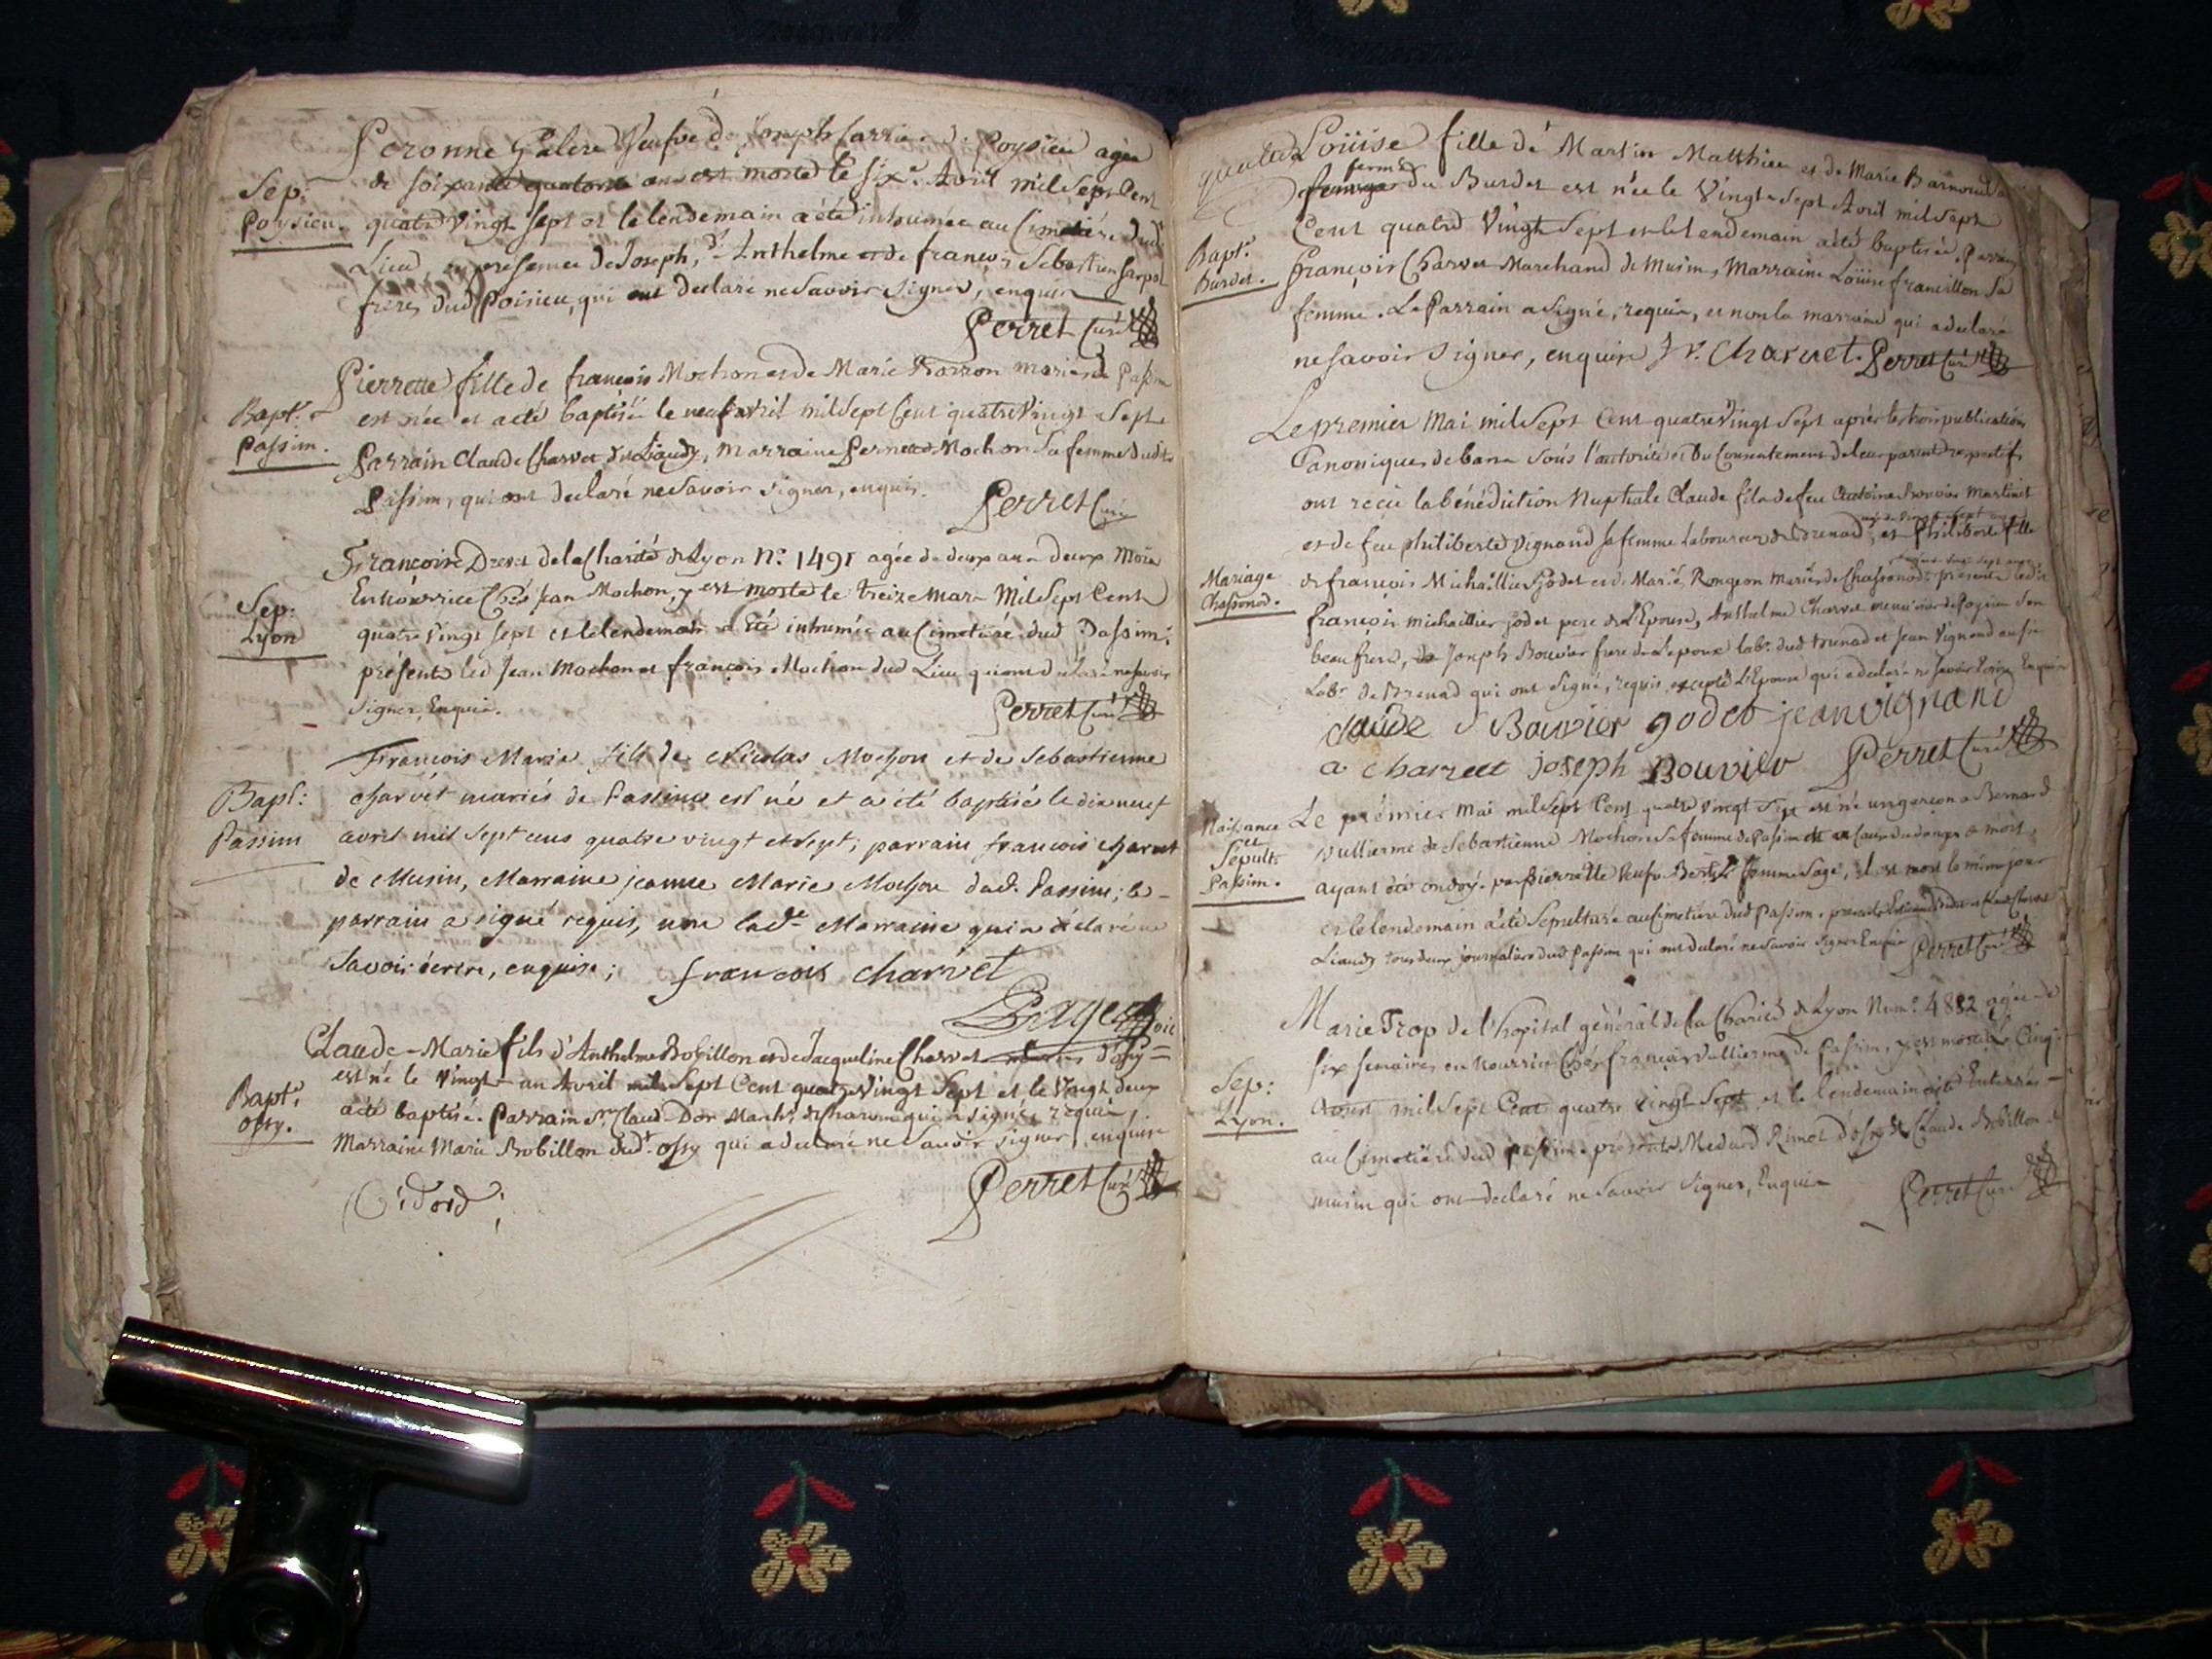 Peronne Galere Veufve de Joseph Carrier de Poysieu agée
Sep:
Poysieu.
de soixante quatorze ans est morte le six.e Avril mil Sept Cent
quatre Vingt sept et le lendemain a été inhumée au Cimetiére dud
Lieu, en presence de Joseph, d'Anthelme et de françois Sebastien
freres dud Poisieu, qui ont declaré ne Savoir signer, enquis
Perret Curé
Bapt.
Passim.
Pierrette fille de françois Mochon et de Marie mariés de Passim
est née et a été baptisée le neuf avril mil Sept Cent quatre Vingt Sept
Parrain Claude Charvet dit Liaudy, Marraine Pernette Mochon Sa femme dudit
Passim, qui ont declaré ne Savoir signer, enquis.
Perret Curé
Sep:
Lyon
Françoise Drevet de la Charité de Lyon N.o 1491 agée de deux ans deux Mois
En nourrice Chés Jean Mochon, y est morte le treize Mars Mil Sept Cent
quatre Vingt sept et le lendemain a été inhumée au Cimetiére dud Passim;
présents led Jean Mochon et françois Mochon dud Lieu qui ont declaré ne savoir
signer, Enquis.
Perret Curé
Bapt:
Passim
François Marie fils de Nicolas Mochon et de Sebastienne
charvét mariés de Passim est né et a été baptisé le dix neuf
avril mil sept cens quatre vingt et sept; parrain françois charvet
de Musin, Marraine jeanne Marie Mochon dud. Passim; le
parrain a signé requis, non lad.e Marraine qui a déclaré ne
Savoir écrire, enquise; francois charvet
Bapt.
Ossy.
Claude-Marie fils d'Anthelme Bobillon et de Jacqueline Charvet mariés d'Ossy
est né le Vingt un Avril mil Sept Cent quatre Vingt Sept et le Vingt deux
a été baptisé. Parrain Sr Claud Dor March. de qui a signé, requis,
Marraine Marie Bobillon dud.t ossy qui a declaré ne Savoir signer, enquise
Perret Curé
Louise fille de Martin Matthieu et de Marie Barnoud
femme
du Burdet est née le Vingt Sept Avril mil Sept
Bapt.
Burdet.
Cent quatre Vingt Sept et le lendemain a été baptisée. Parrain
françois Charvet Marchand de Musin, Marraine Loüise francillon Sa
femme. Le Parrain a signé, requis, et non la marraine qui a declaré
ne Savoir signer, enquise fr. Charvet. Perret Curé
Mariage
Chassonod.
Le premier Mai mil Sept Cent quatre Vingt Sept aprés les trois publications
Canoniques de bans sous l'autorité et du Consentement de leurs parents respectifs
ont reçu la bénédiction Nuptiale Claude fils de feu Antoine Bouvier Martinet
et de feu philiberte Vignand sa femme Laboureur de Brenad, et Philiberte fille
de françois Michaillier Godet et de Marie Rongeon mariés de Chassonod: présents ledit
françois Michaillier Godet pere de l'Epouse, Anthelme Charvet de Poysieu Son
beau frere, Joseph Bouvier frere de l'époux lab.r dud brenad et Jean Vignand aussi
Lab.r de Brenad qui ont signé, requis, excepté l'Epouse qui a declaré ne Savoir Ecrire Enquise
claude Bouvier godet jean vignand
a charvet joseph Bouvier Perret Curé
Naissance
et
Sépult.
Passim.
Le prémier Mai mil Sept Cent quatre Vingt Sept est né un garçon a Bernard
Vullierme de Sebastienne Mochon Sa femme de Passim a cause du danger de mort,
ayant été ondoyé par Pierrette Veufve femme Sage, il est mort le même jour
et le lendemain a été Sepulturé au Cimetiére dud Passim. présents
Liaudy tous deux journaliers dud Passim qui ont declaré ne Savoir signer Enquis Perret Curé
Sep:
Lyon.
Marie Trop de l'hopital général de la Charité de Lyon Num.o 4882 agée de
six semaines en nourrice Chés françois Vullierme de Passim, y est morte le Cinq
Aoust mil Sept Cent quatre Vingt Sept et le lendemain a été Enterrée
au Cimetiére dud passim. présents Medard Rimot d'ossy et Claude Bobillon de
musin qui ont declaré ne Savoir signer, Enquis
Perret Curé